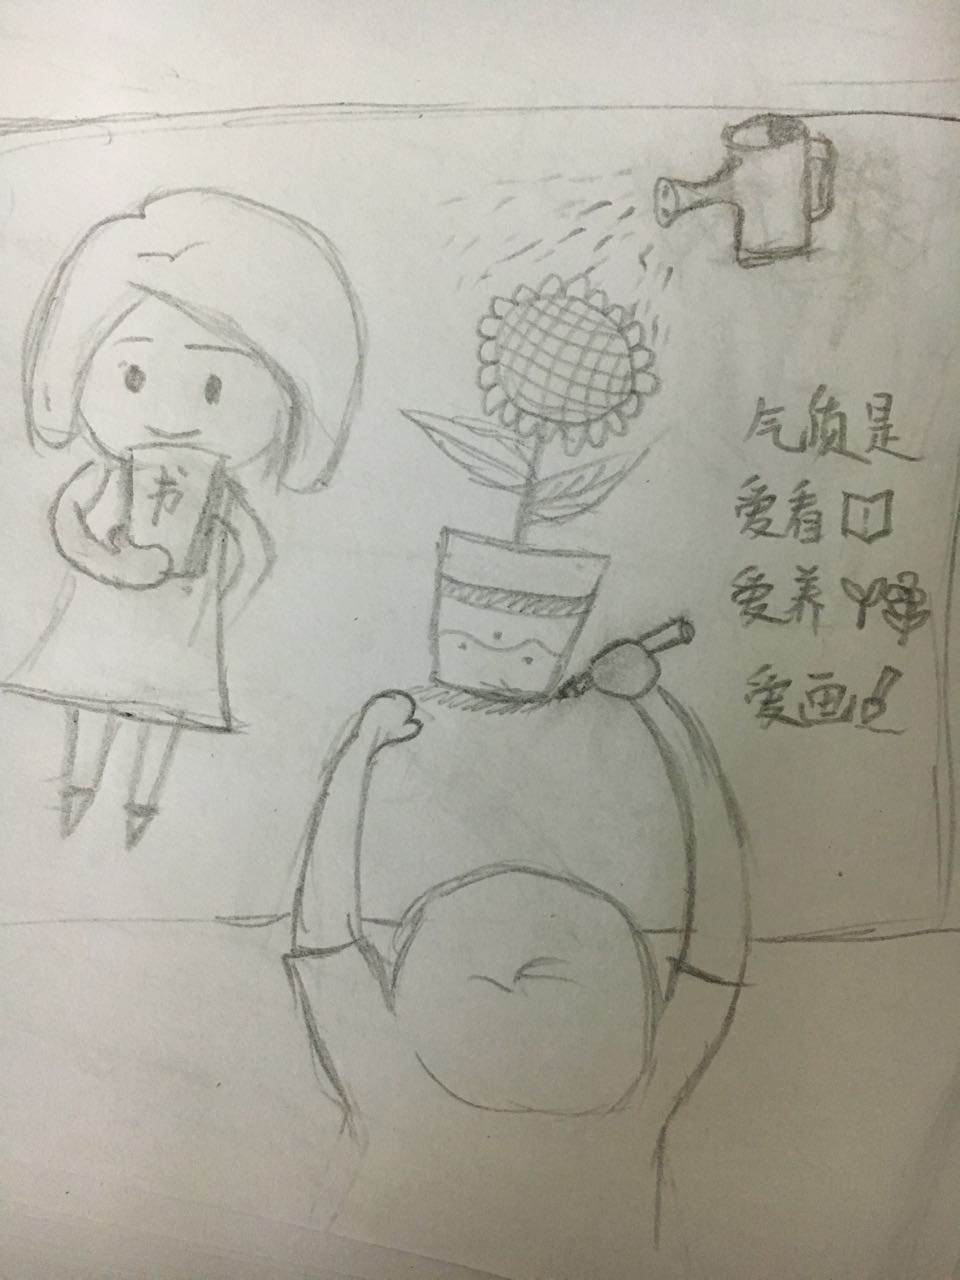 书
气质是
爱看
爱养
爱画